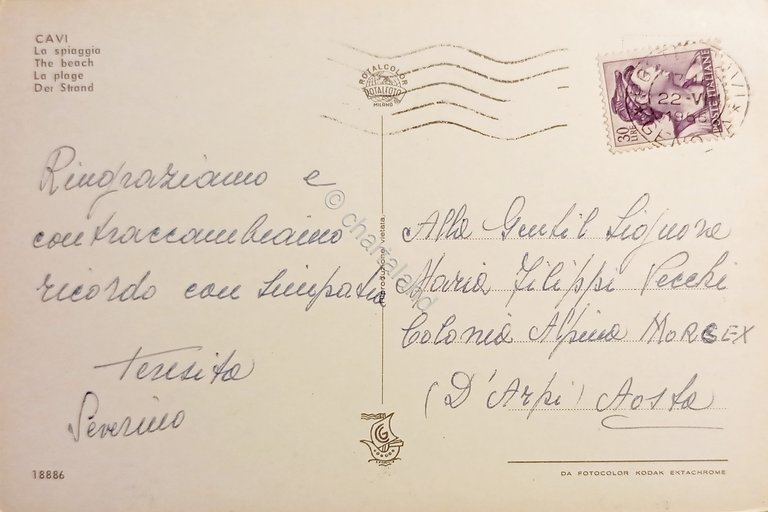 CAVI
La spiaggia
The beach
La plage
Der Strand
ROTALCOLOR
ROTALFOTO
MILANO
30
LIRE
POSTE ITALIANE
22-VI
Ringraziamo e
contraccambiamo
ricordo con simpatia
Teresita
Severino
Alla Gentil Signora
Maria Filippi Vecchi
Colonia Alpina MORGEX
(D'Arpi) Aosta
Riproduzione vietata
© chartaland
18886
DA FOTOCOLOR KODAK EKTACHROME